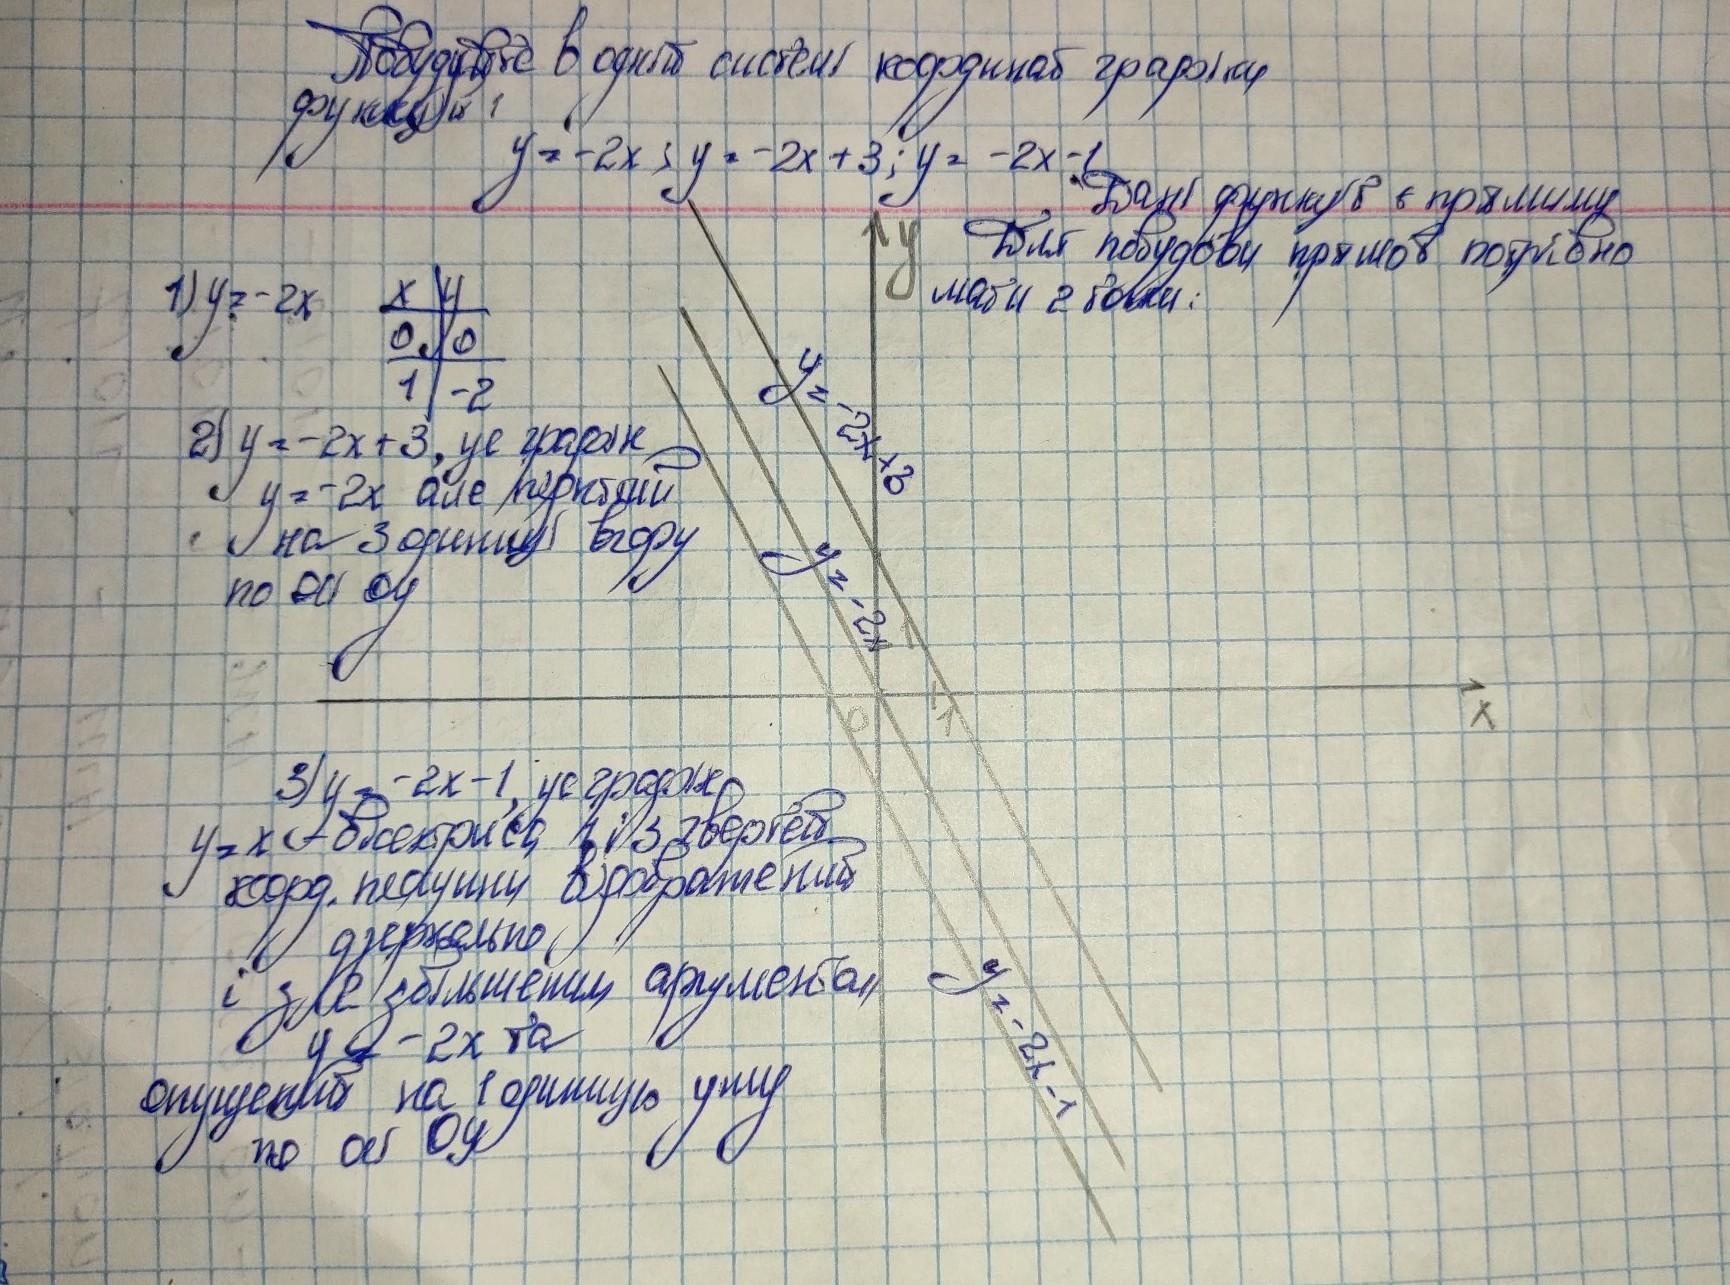 Побудуйте в одній системі координат графіки
функцій:
y = -2x ; y = -2x + 3 ; y = -2x -1
Дані функції є прямими
Для побудови прямої потрібно
мати 2 точки:
1) y = -2x
x y
0 0
1 -2
2) y = -2x + 3, це графік
y = -2x але
на 3 одиниці вгору
по осі Oy
y
y = -2x + 3
y = -2x
1
0
1
x
3) y = -2x - 1, це графік
y = x - бісектриса 1 і 3 чвертей
коорд. відображений
дзеркально
і з збільшеним аргументом
y = -2x та
опущений на 1 одиницю униз
по осі Oy
y = -2x - 1